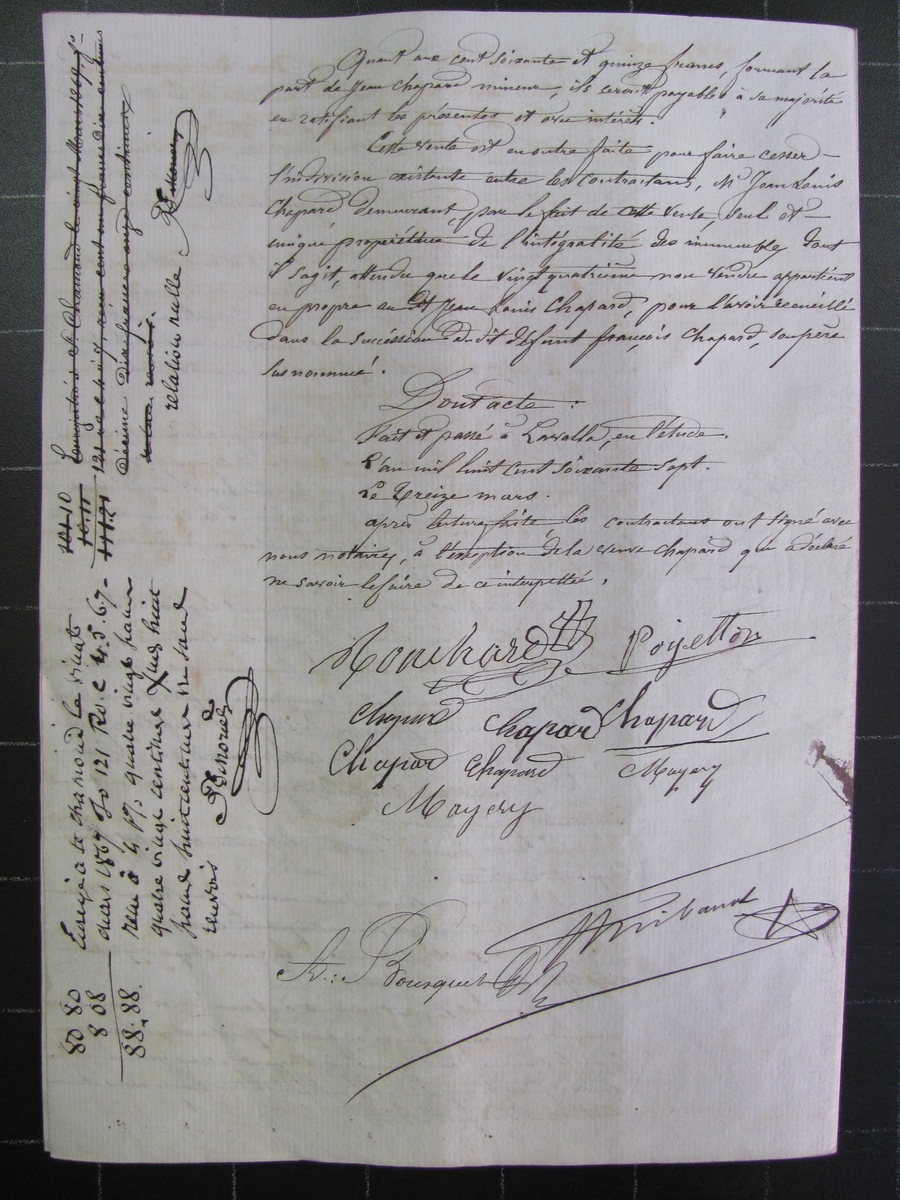 Quant aux cent soixante et quinze francs, formant la
part de Jean Chapard mineur, ils seront payables à sa majorité
en ratifiant les présentes et avec intérêts.
Cette vente est en outre faite pour faire cesser
l'indivision existante entre les contractans, Mr Jean Louis
Chapard demeurant, par le fait de cette vente, seul et
unique propriétaire de l'intégralité des immeubles dont
il s'agit, attendu que le vingtquatrième non vendu appartient
en propre au dt Jean Louis Chapard, pour l'avoir recueilli
dans la succession dudit défunt françois Chapard, son père
susnommé.
Dont acte :
Fait et passé à Lavalla, en l'étude.
L'an mil huit cent soixante sept.
Le treize mars.
après lecture faite les contractans ont signé avec
nous notaires, à l'exception de la veuve Chapard qui a déclaré
ne savoir le faire de ce interpellée.
Poyetton
Chapard Chapard Chapard
Chapard Chapard Mayery
Mayery
A. Bousquet
relation nulle
101.10
10.11
111.21
Enregé à St chamond le vingt
mars 1867 fo 121 Ro. c 4.5.6.7.
reçu à 4 p% quatre vingt francs
quatre vingt centimes plus huit
francs huit centimes un seul
renvoi
80 80
8 08
88.88.